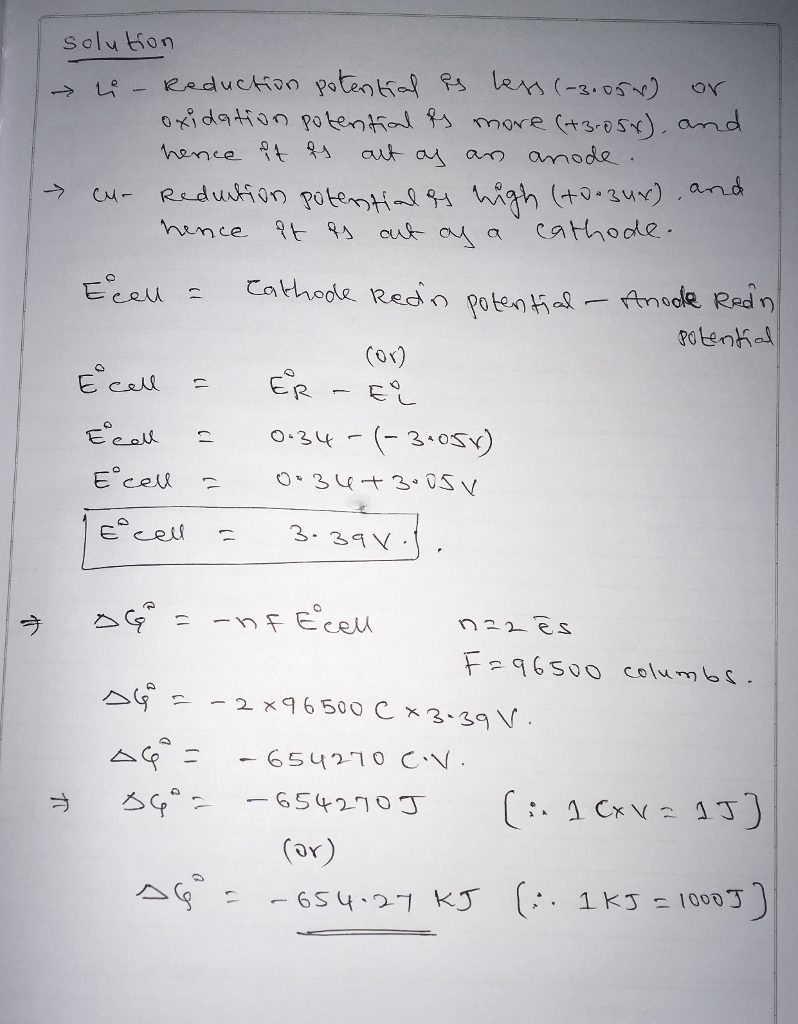 Solution
→ Li - Reduction potential is less (-3.05V) or
oxidation potential is more (+3.05V), and
hence it is act as an anode.
→ Cu- Reduction potential is high (+0.34V), and
hence it is act as a cathode.
E°cell = Cathode Red'n potential - Anode Red'n
potential
(or)
E°cell = E°R - E°L
E°cell = 0.34 - (-3.05V)
E°cell = 0.34 + 3.05V
E°cell = 3.39V.
⇒ ΔG° = -nFE°cell n=2 ēs
F=96500 columbs.
ΔG° = -2×96500 C × 3.39 V.
ΔG° = -654270 C.V.
⇒ ΔG° = -654270J [∵ 1 C×V = 1J]
(or)
ΔG° = -654.27 KJ [∵ 1KJ = 1000J]